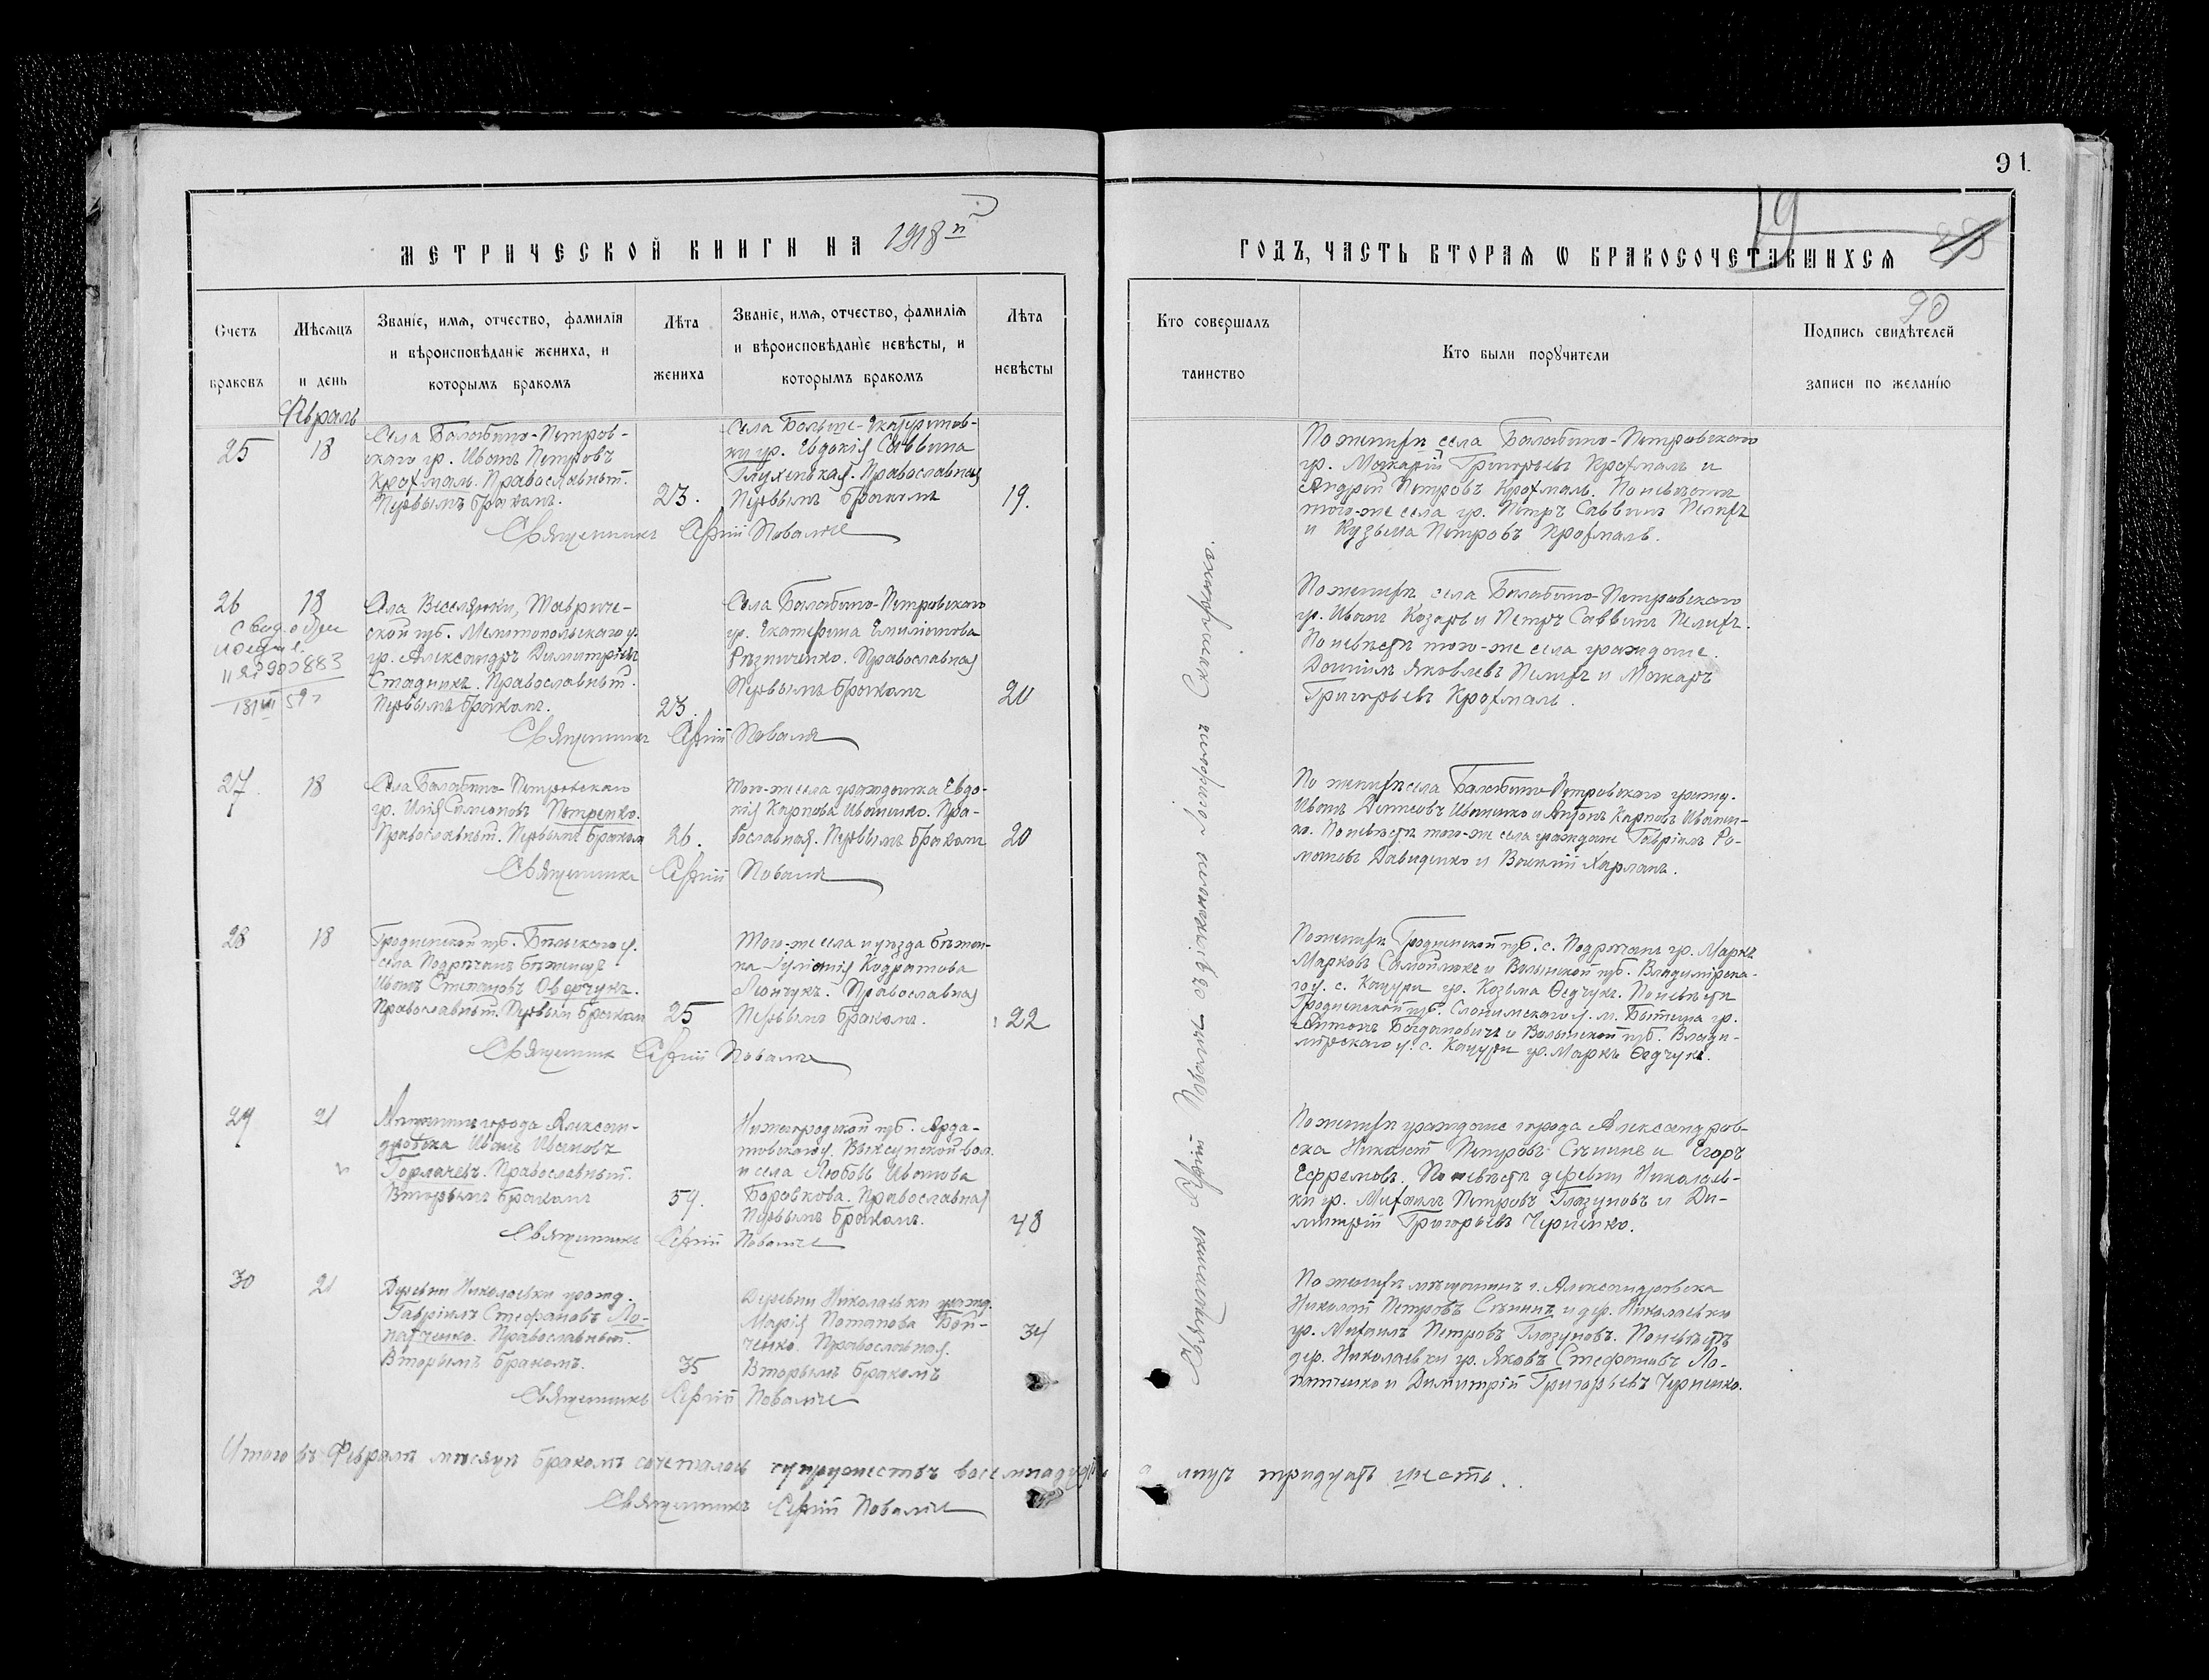 91.
19
90
МЕТРИЧЕСКОЙ КНИГИ НА 1918 й
ГОДЪ, ЧАСТЬ ВТОРАЯ Ѡ БРАКОСОЧЕТАВШИХСЯ
Счетъ браковъ
Мѣсяцъ и день
Званіе, имя, отчество, фамилія
и вѣроисповѣданіе жениха, и
которымъ бракомъ
Лѣта жениха
Званіе, имя, отчество, фамилія
и вѣроисповѣданіе невѣсты, и
которымъ бракомъ
Лѣта невѣсты
Кто совершалъ таинство
Кто были порꙋчители
Подпись свидѣтелей
записи по желанію
Февраль
25
18
Села Балабино-Петров-
скаго гр. Иванъ Петровъ
Крохмаль. Православный.
Первымъ бракомъ.
23.
Села Больше-Екатеринов-
ки гр. Евдокія Саввина
Глухенькая. Православная
Первымъ бракомъ
19.
По женихѣ села Балабино-Петровскаго
гр. Макарій Григорьевъ Крохмаль и
Андрей Петровъ Крохмаль. По невѣстѣ
того-же села гр. Петръ Саввинъ Пелихъ
и Кузьма Петровъ Крохмаль.
Священникъ Сергій
26
18
Села Веселянки, Тавриче-
ской губ. Мелитопольскаго у.
гр. Александръ Димитріевъ
Стадникъ. Православный.
Первымъ бракомъ.
23.
Села Балабино-Петровскаго
гр. Екатерина Емиліанова
Рѣзниченко. Православная
Первымъ бракомъ
20
По женихѣ села Балабино-Петровскаго
гр. Иванъ Козарь и Петръ Саввинъ Пелихъ.
По невѣстѣ того-же села граждане
Даніилъ Яковлевъ Пелихъ и Макаръ
Григорьевъ Крохмаль.
Священникъ Сергій
27.
18
Села Балабино-Петровскаго
гр. Илія Симеоновъ Петренко.
Православный. Первымъ бракомъ
26.
Того-же села гражданка Евдо-
кія Карпова Иваненко. Пра-
вославная. Первымъ бракомъ
20
По женихѣ села Балабино-Петровскаго гражд.
Иванъ Денисовъ Иваненко и Антонъ Карповъ Иванен-
ко. По невѣстѣ того-же села граждане Гавріилъ Ро-
мановъ Давиденко и Василій Харланъ.
Священникъ Сергій
28
18
Гродненской губ. Бѣльскаго у.
села Подрѣчанъ бѣженецъ
Иванъ Степановъ Оверчукъ.
Православный. Первымъ бракомъ
25
Того-же села и уѣзда бѣжен-
ка Іуліанія Кодратова
Леончукъ. Православная
Первымъ бракомъ.
22
По женихѣ Гродненской губ. с. гр. Маркъ
Марковъ Самойлюкъ и Волынской губ. Владимірска-
го у. с. гр. Козьма Ѳедчукъ. По невѣстѣ
Гродненской губ. Слонимскаго у. м. Бытеня гр.
Антонъ Богдановичъ и Волынской губ. Влади-
мірскаго у. с. гр. Маркъ Ѳедчукъ.
Священникъ Сергій
29
21
Мѣщанинъ города Алексан-
дровска Иванъ Ивановъ
Горлачевъ. Православный.
Вторымъ бракомъ
59.
Нижегородской губ. Арда-
товскаго у. Выксунской вол.
и села Любовь Иванова
Боровкова. Православная
Первымъ бракомъ.
48
По женихѣ граждане города Александров-
ска Николай Петровъ и Егоръ
Ефремовъ. По невѣстѣ деревни Николаев-
ки гр. Михаилъ Петровъ Глазуновъ и Ди-
митрій Григорьевъ Черненко.
Священникъ Сергій
30
21
Деревни Николаевки гражд.
Гавріилъ Стефановъ Ло-
патченко. Православный.
Вторымъ бракомъ.
35
Деревни Николаевки гражд.
Марія Потапова Бой-
ченко. Православная.
Вторымъ бракомъ
34
По женихѣ мѣщанинъ г. Александровска
Николай Петровъ и дер. Николаевки
гр. Михаилъ Петровъ Глазуновъ. По невѣстѣ
дер. Николаевки гр. Яковъ Стефановъ Ло-
патченко и Димитрій Григорьевъ Черненко.
Священникъ Сергій
Итого въ Февралѣ мѣсяцѣ бракомъ сочеталось супружествъ восемнадцать а лицъ тридцать шесть.
Священникъ Сергій